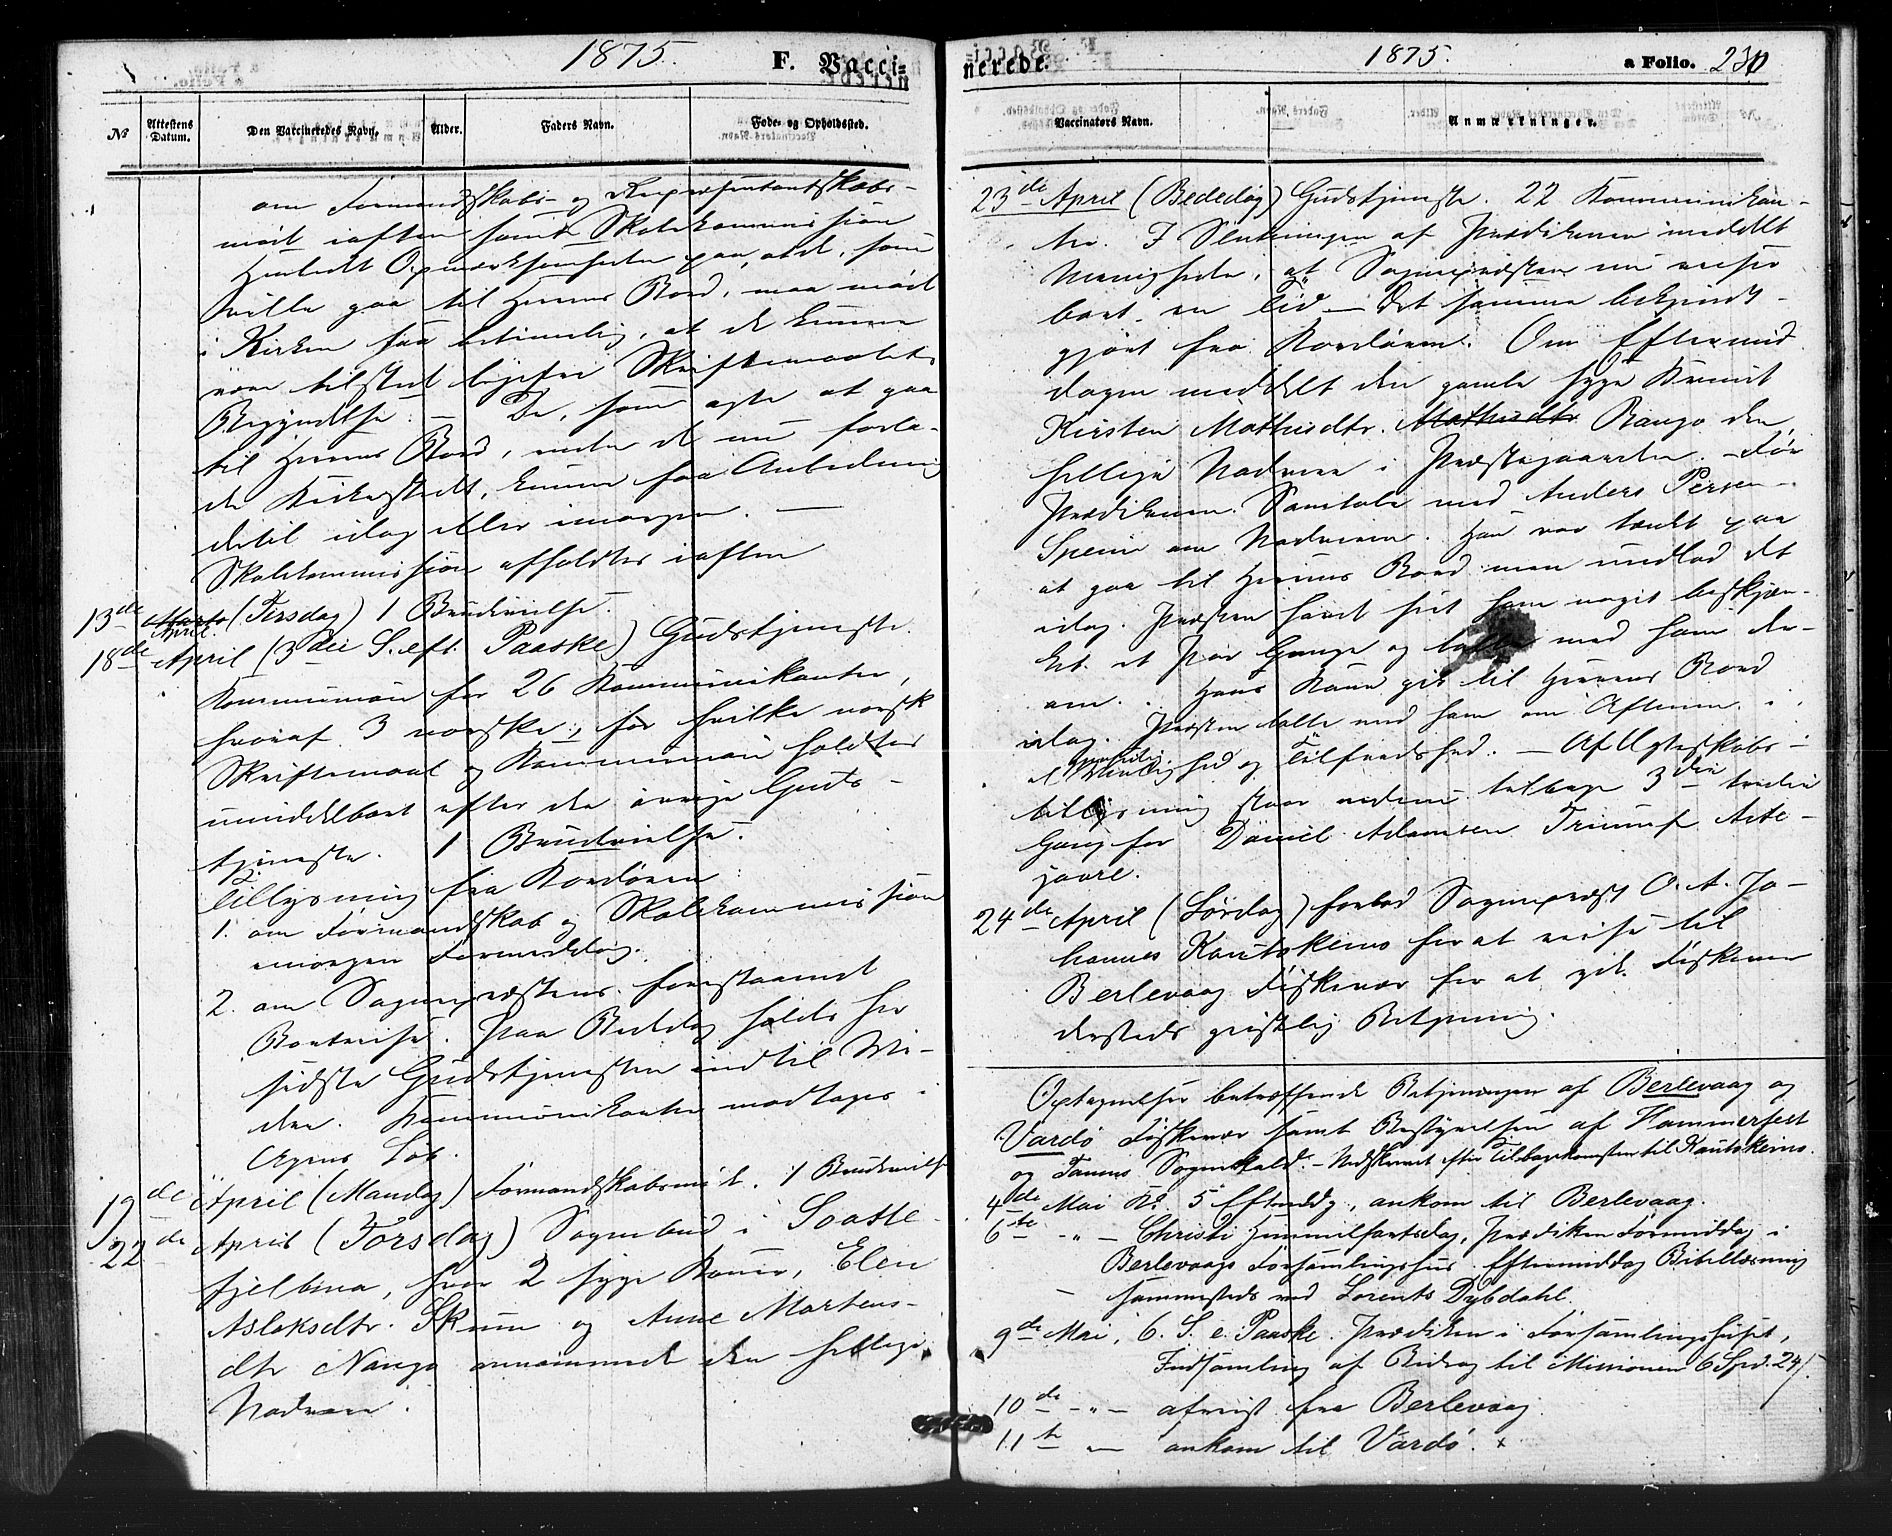 1875. F. Vacci-
No Attestens Datum. Den Vaccineredes Navn. Alder. Faders Navn. Føde- og Opholdssted.
om Formandskabs- og Repræsentantskabs-
möde iaften samt Skolekommission
Henledet Opmærksomheden paa, at de, som
ville gaa til Herrens Bord, maa möde
i Kirken saa betimelig, at de kunne
være tilstede ligefra Skriftemaalets
Begyndelse. — De, som agte at gaa
til Herrens Bord, inden de nu forla-
de Kirkestedet, kunne faa Anledning
dertil idag eller imorgen. —
Skolekommission afholdtes iaften
13de Marts April (Tirsdag) 1 Brudevielse.
18de April (3die S. eft. Paaske) Gudstjeneste
Kommunion for 26 Kommunikanter,
hvoraf 3 norske, for hvilke norsk
Skriftemaal og Kommunion holdtes
umiddelbart efter den övrige Guds-
tjeneste. 1 Brudevielse.
Tillysning fra Kordören:
1. om Formandskab og Skolekommission
imorgen Formiddag.
2. om Sognepræstens forestaaende
Bortreise. Paa Bededag holdes her
sidste Gudstjeneste indtil Mi-
den. Kommunikanter modtages i
Ugens Löb.
19de April (Mandag) Formandskabsmöde. 1 Brudevielse
22de April (Torsdag) Sognebud i Soatte-
fjelbma, hvor 2 syge Koner, Elen
Aslaksdtr. Skum og Anne Mortens-
dtr Nango annammede den hellige
Nadvere.
nerede. 1875. a Folio. 230
Vaccinatørs Navn. Anmærkninger.
23de April (Bededag) Gudstjeneste. 22 Kommunikan-
ter. I Slutningen af Prædikenen meddelt
Menigheden, at Sognepræsten nu reiser
bort en Tid — Det samme bekjendt-
gjort fra Kordören. Om Eftermid-
dagen meddelt den gamle syge Kvinde
Kirsten Mathisdtr. Mathisdtr Bango den
hellige Nadvere i Præstegaarden. — Før
Prædikenen Samtale med Anders Persen
Spein om Nadveren. Han var tænkt paa
at gaa til Herrens Bord men undlod det
idag. Præsten havde hidt ham noget beskjæn-
ket et Par Gange og talte med ham der-
om. Hans Kone gik til Herrens Bord
idag. Præsten talte med ham om Aftenen i
al Venlighed og Tilfredshed. — Af Ægteskabs-
tillysning staar endnu tilbage 3die tredie
Gang for Daniel Adamsen Triumf Aite-
javre.
24de April (Lørdag) forlod Sognepræst O. A. Jo-
hannes Kautokeino for at reise til
Berlevaag Fiskevær for at give Fiskerne
dersteds geistlig Betjening.
Optegnelser betræffende Betjeningen af Berlevaag og
Vardö Fiskevær samt Bestyrelsen af Hammerfest
og Tanens Sognekald. — Nedskrevet efter Tilbagekomsten til Kautokeino.
4de Mai Kl. 5 Eftmdg, ankom til Berlevaag.
6te -"- Christi Himmelfartsdag, Prædiken Formiddag i
Berlevaags Forsamlingshus Eftermiddag Bibellæsning
sammesteds ved Lorents Dybdahl.
9de Mai, 6. S. e. Paaske. Prædiken i Forsamlingshuset,
Indsamling af Bidrag til Missionen 6 Spd. 24 s.
10de -"- afreist fra Berlevaag
11te — ankom til Vardö.